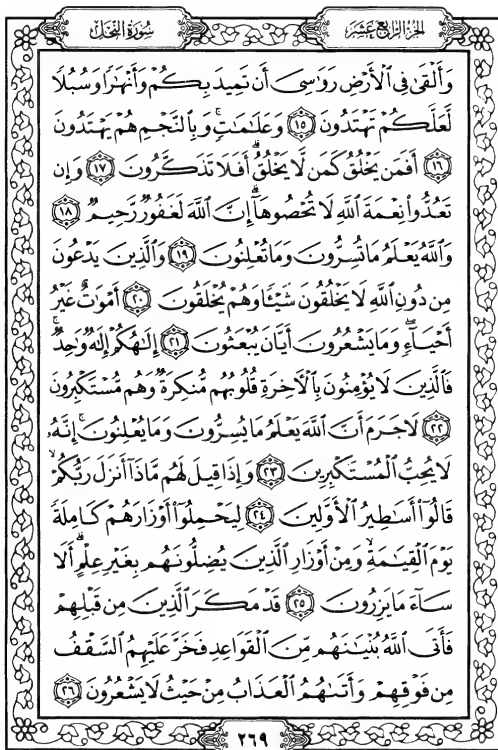 سُورَةُ النَّحْلِ
الجُزْءُ الرَّابِعَ عَشَرَ
وَأَلْقَىٰ فِي ٱلْأَرْضِ رَوَٰسِيَ أَن تَمِيدَ بِكُمْ وَأَنْهَٰرًا وَسُبُلًا
لَّعَلَّكُمْ تَهْتَدُونَ ١٥ وَعَلَٰمَٰتٍ ۚ وَبِٱلنَّجْمِ هُمْ يَهْتَدُونَ
١٦ أَفَمَن يَخْلُقُ كَمَن لَّا يَخْلُقُ ۗ أَفَلَا تَذَكَّرُونَ ١٧ وَإِن
تَعُدُّوا۟ نِعْمَةَ ٱللَّهِ لَا تُحْصُوهَآ ۗ إِنَّ ٱللَّهَ لَغَفُورٌ رَّحِيمٌ ١٨
وَٱللَّهُ يَعْلَمُ مَا تُسِرُّونَ وَمَا تُعْلِنُونَ ١٩ وَٱلَّذِينَ يَدْعُونَ
مِن دُونِ ٱللَّهِ لَا يَخْلُقُونَ شَيْـًٔا وَهُمْ يُخْلَقُونَ ٢٠ أَمْوَٰتٌ غَيْرُ
أَحْيَآءٍ ۖ وَمَا يَشْعُرُونَ أَيَّانَ يُبْعَثُونَ ٢١ إِلَٰهُكُمْ إِلَٰهٌ وَٰحِدٌ ۚ
فَٱلَّذِينَ لَا يُؤْمِنُونَ بِٱلْـَٔاخِرَةِ قُلُوبُهُم مُّنكِرَةٌ وَهُم مُّسْتَكْبِرُونَ
٢٢ لَا جَرَمَ أَنَّ ٱللَّهَ يَعْلَمُ مَا يُسِرُّونَ وَمَا يُعْلِنُونَ ۚ إِنَّهُۥ
لَا يُحِبُّ ٱلْمُسْتَكْبِرِينَ ٢٣ وَإِذَا قِيلَ لَهُم مَّاذَآ أَنزَلَ رَبُّكُمْ ۙ
قَالُوٓا۟ أَسَٰطِيرُ ٱلْأَوَّلِينَ ٢٤ لِيَحْمِلُوٓا۟ أَوْزَارَهُمْ كَامِلَةً
يَوْمَ ٱلْقِيَٰمَةِ ۙ وَمِنْ أَوْزَارِ ٱلَّذِينَ يُضِلُّونَهُم بِغَيْرِ عِلْمٍ ۗ أَلَا
سَآءَ مَا يَزِرُونَ ٢٥ قَدْ مَكَرَ ٱلَّذِينَ مِن قَبْلِهِمْ
فَأَتَى ٱللَّهُ بُنْيَٰنَهُم مِّنَ ٱلْقَوَاعِدِ فَخَرَّ عَلَيْهِمُ ٱلسَّقْفُ
مِن فَوْقِهِمْ وَأَتَىٰهُمُ ٱلْعَذَابُ مِنْ حَيْثُ لَا يَشْعُرُونَ ٢٦
٢٦٩